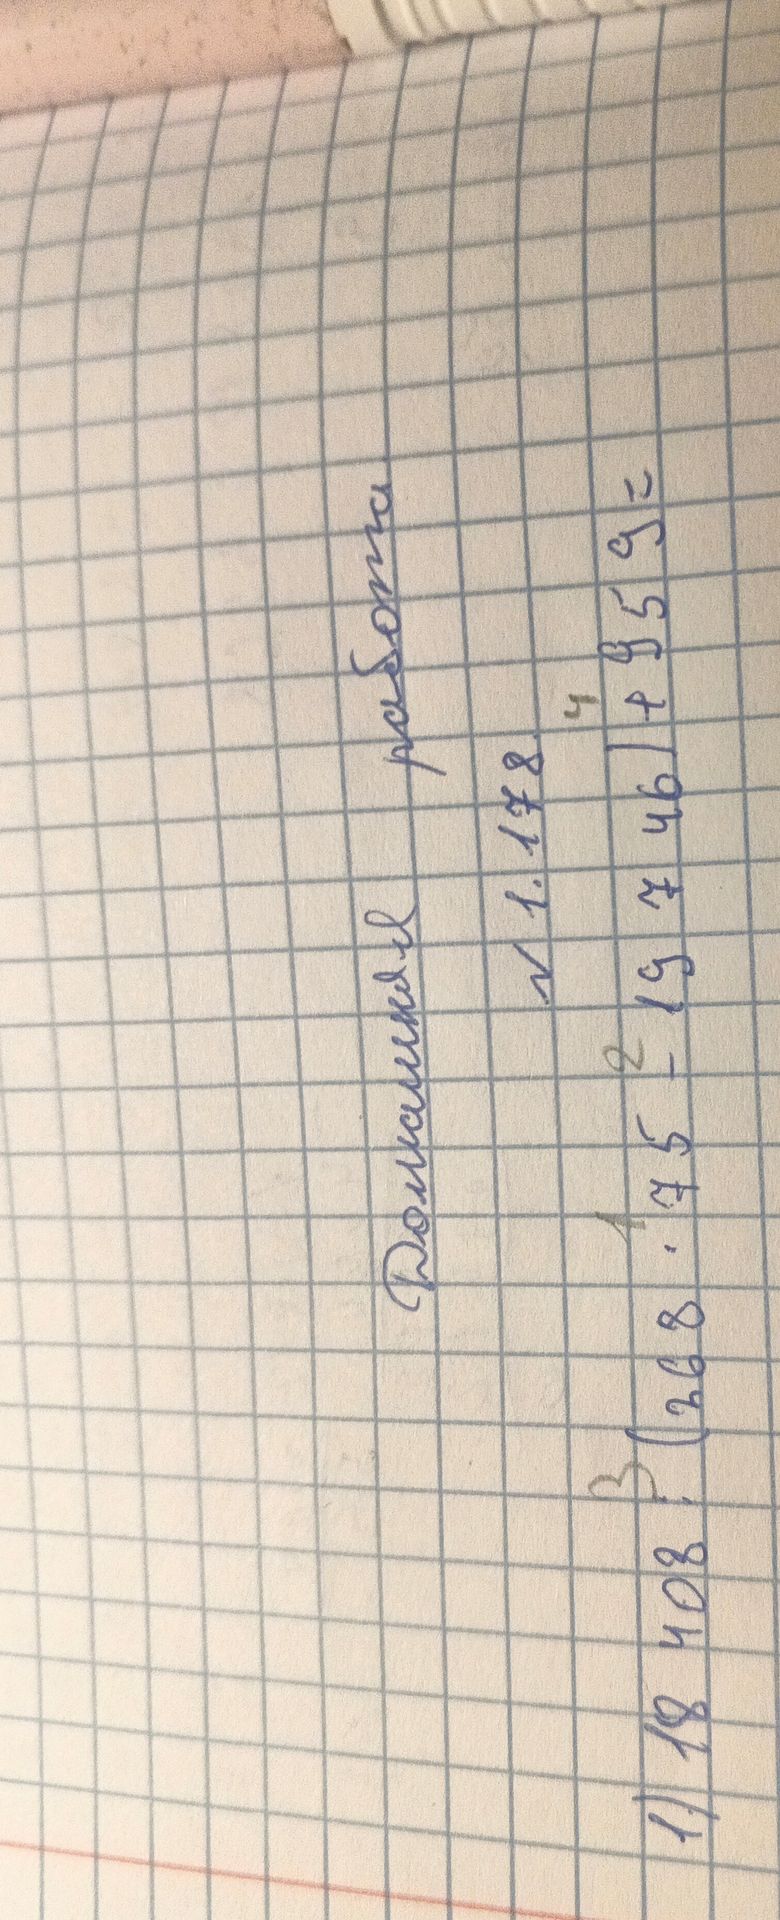 Домашняя работа
№ 1.178.
3 1 2 4
1) 18 408 : (268 · 75 - 19 746) + 959 =